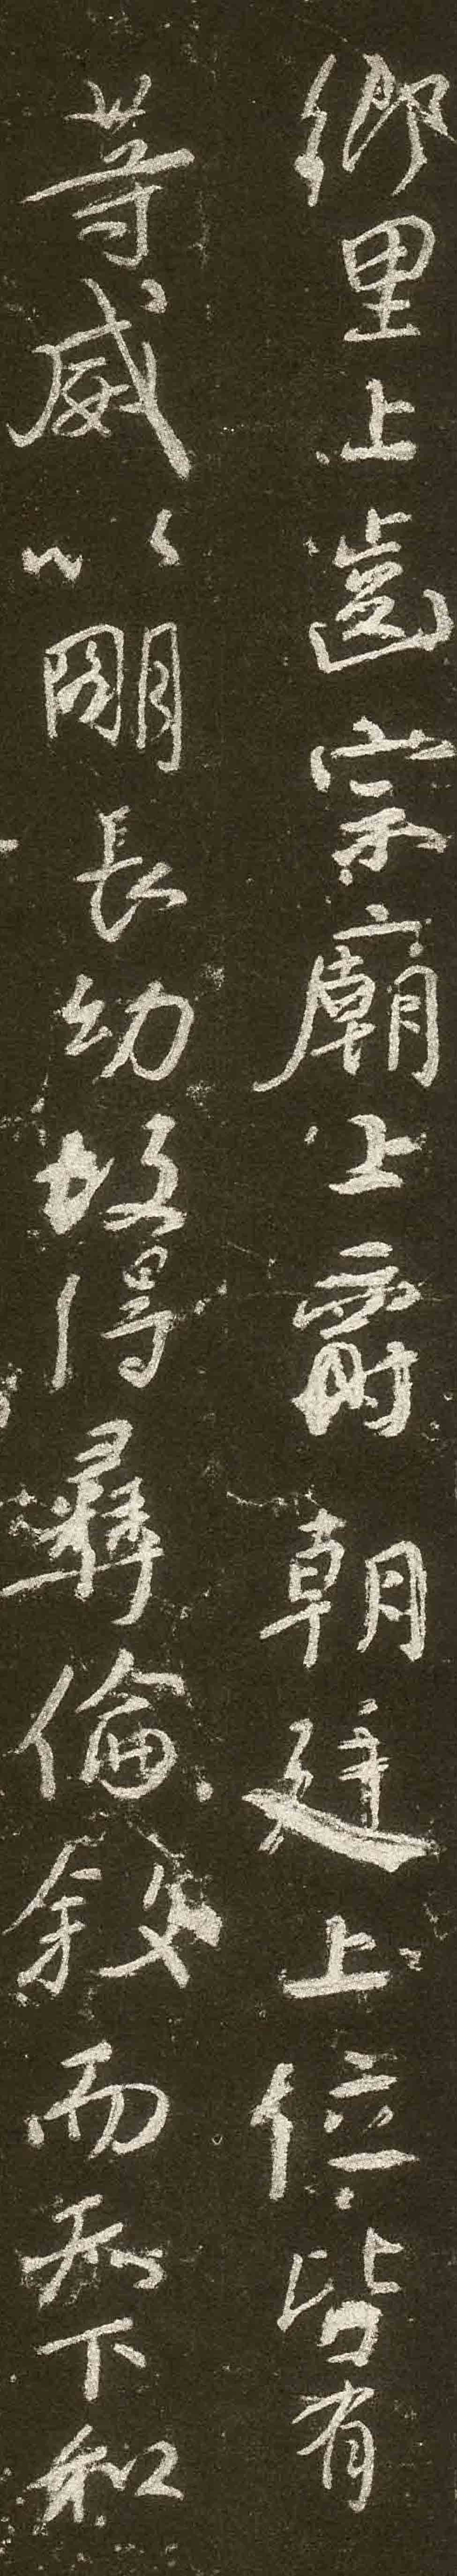 鄉里上齒宗廟上爵朝廷上位皆有
等威以明長幼故得彝倫敘而天下和